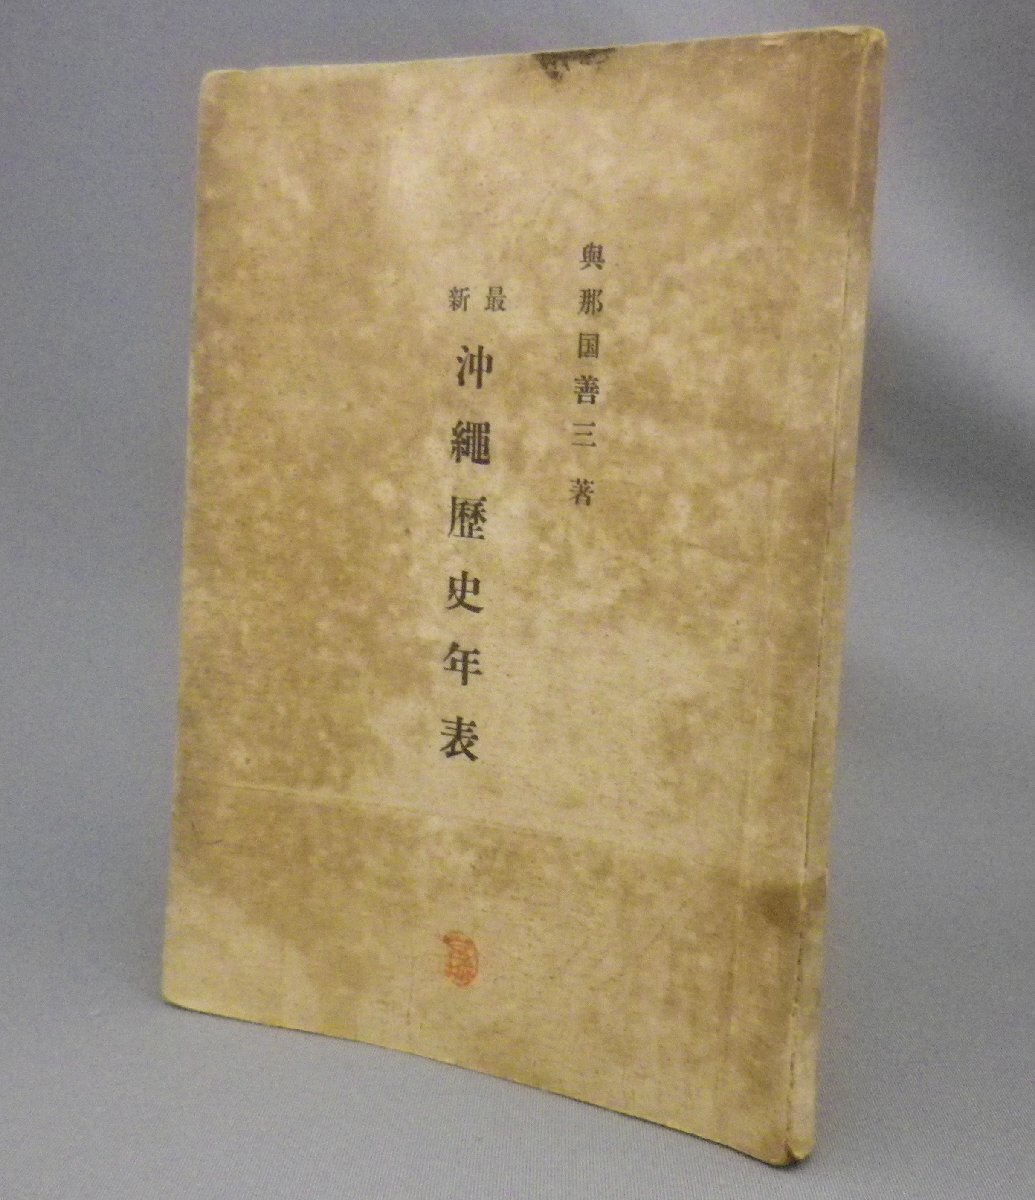 與那国善三 著
最新
沖繩歴史年表